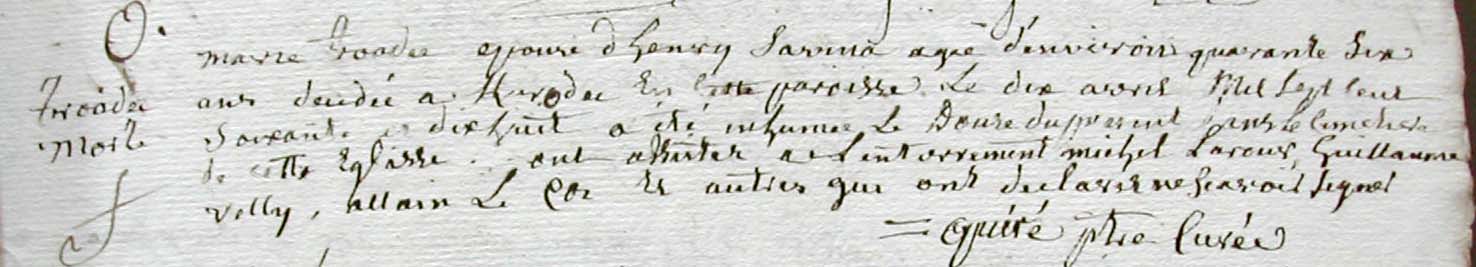 marie troadec epouse d'henry Savina agée d'environ quarante six
troadec
ans decedée a Kerodec En cette paroisse Le dix avril Mil Sept Cent
Morte
Soixante dixhuit a été inhumée Le Douze du present dans le Cimetiere
de cette Eglisse ont assistés a L'enterrement michel Larour, Guillaume
velly, allain Le Cor Et autres qui ont declarer ne scavoir signer
ptre Curée